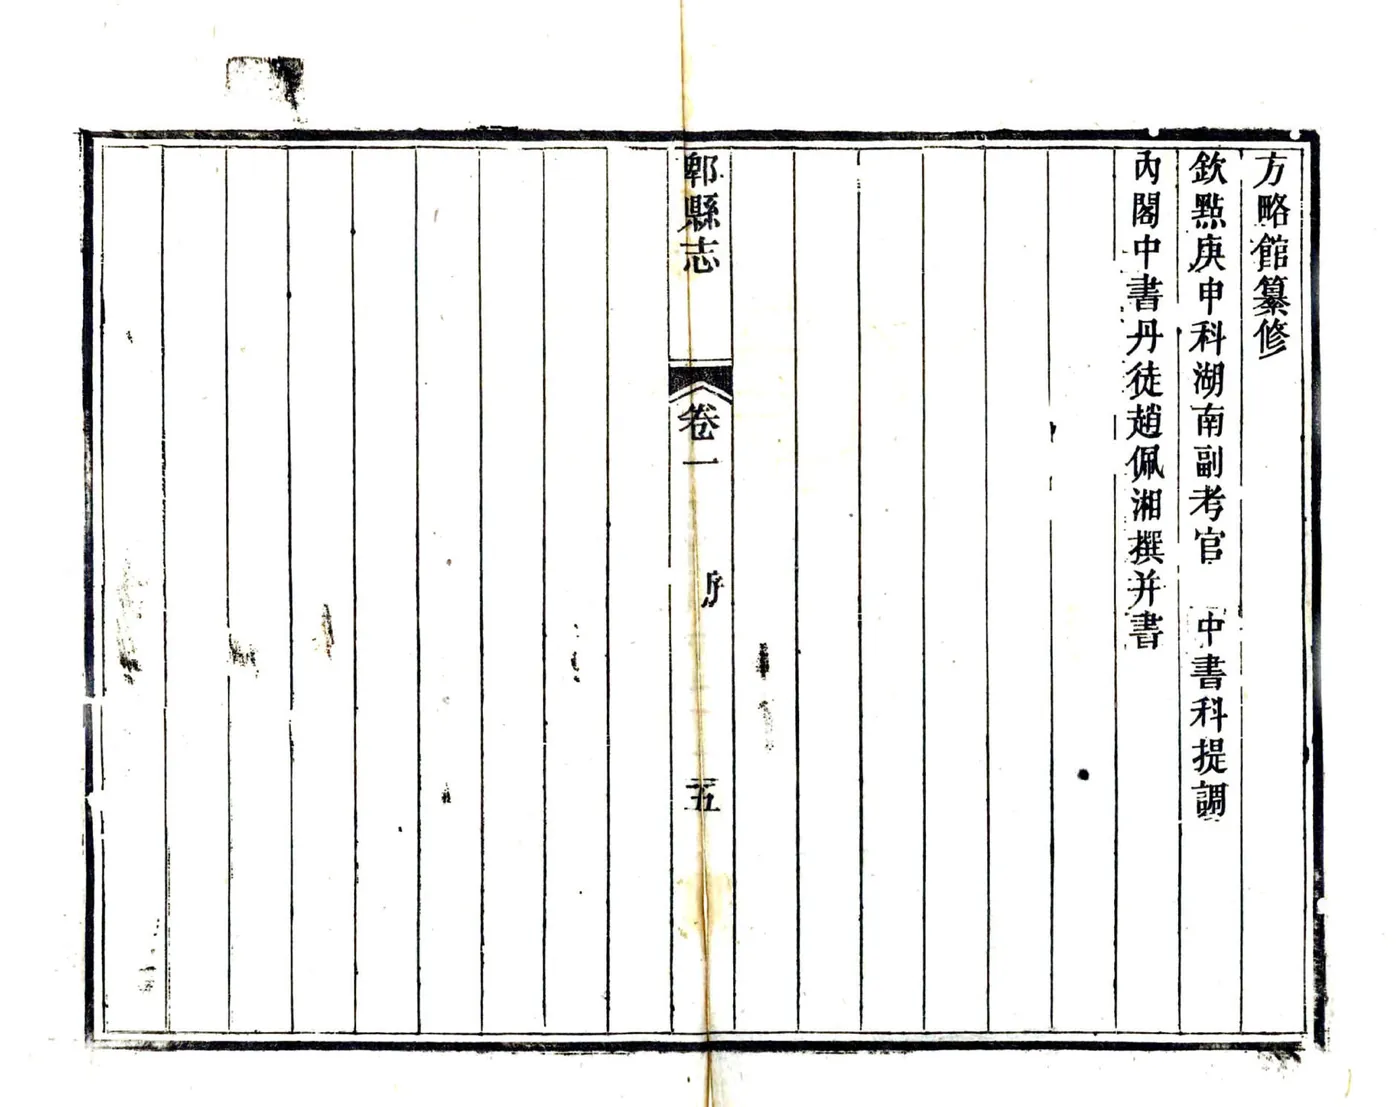 方略館纂修
欽點庚申科湖南副考官　中書科提調
內閣中書丹徒趙佩湘撰并書
郫縣志
卷一
序
五